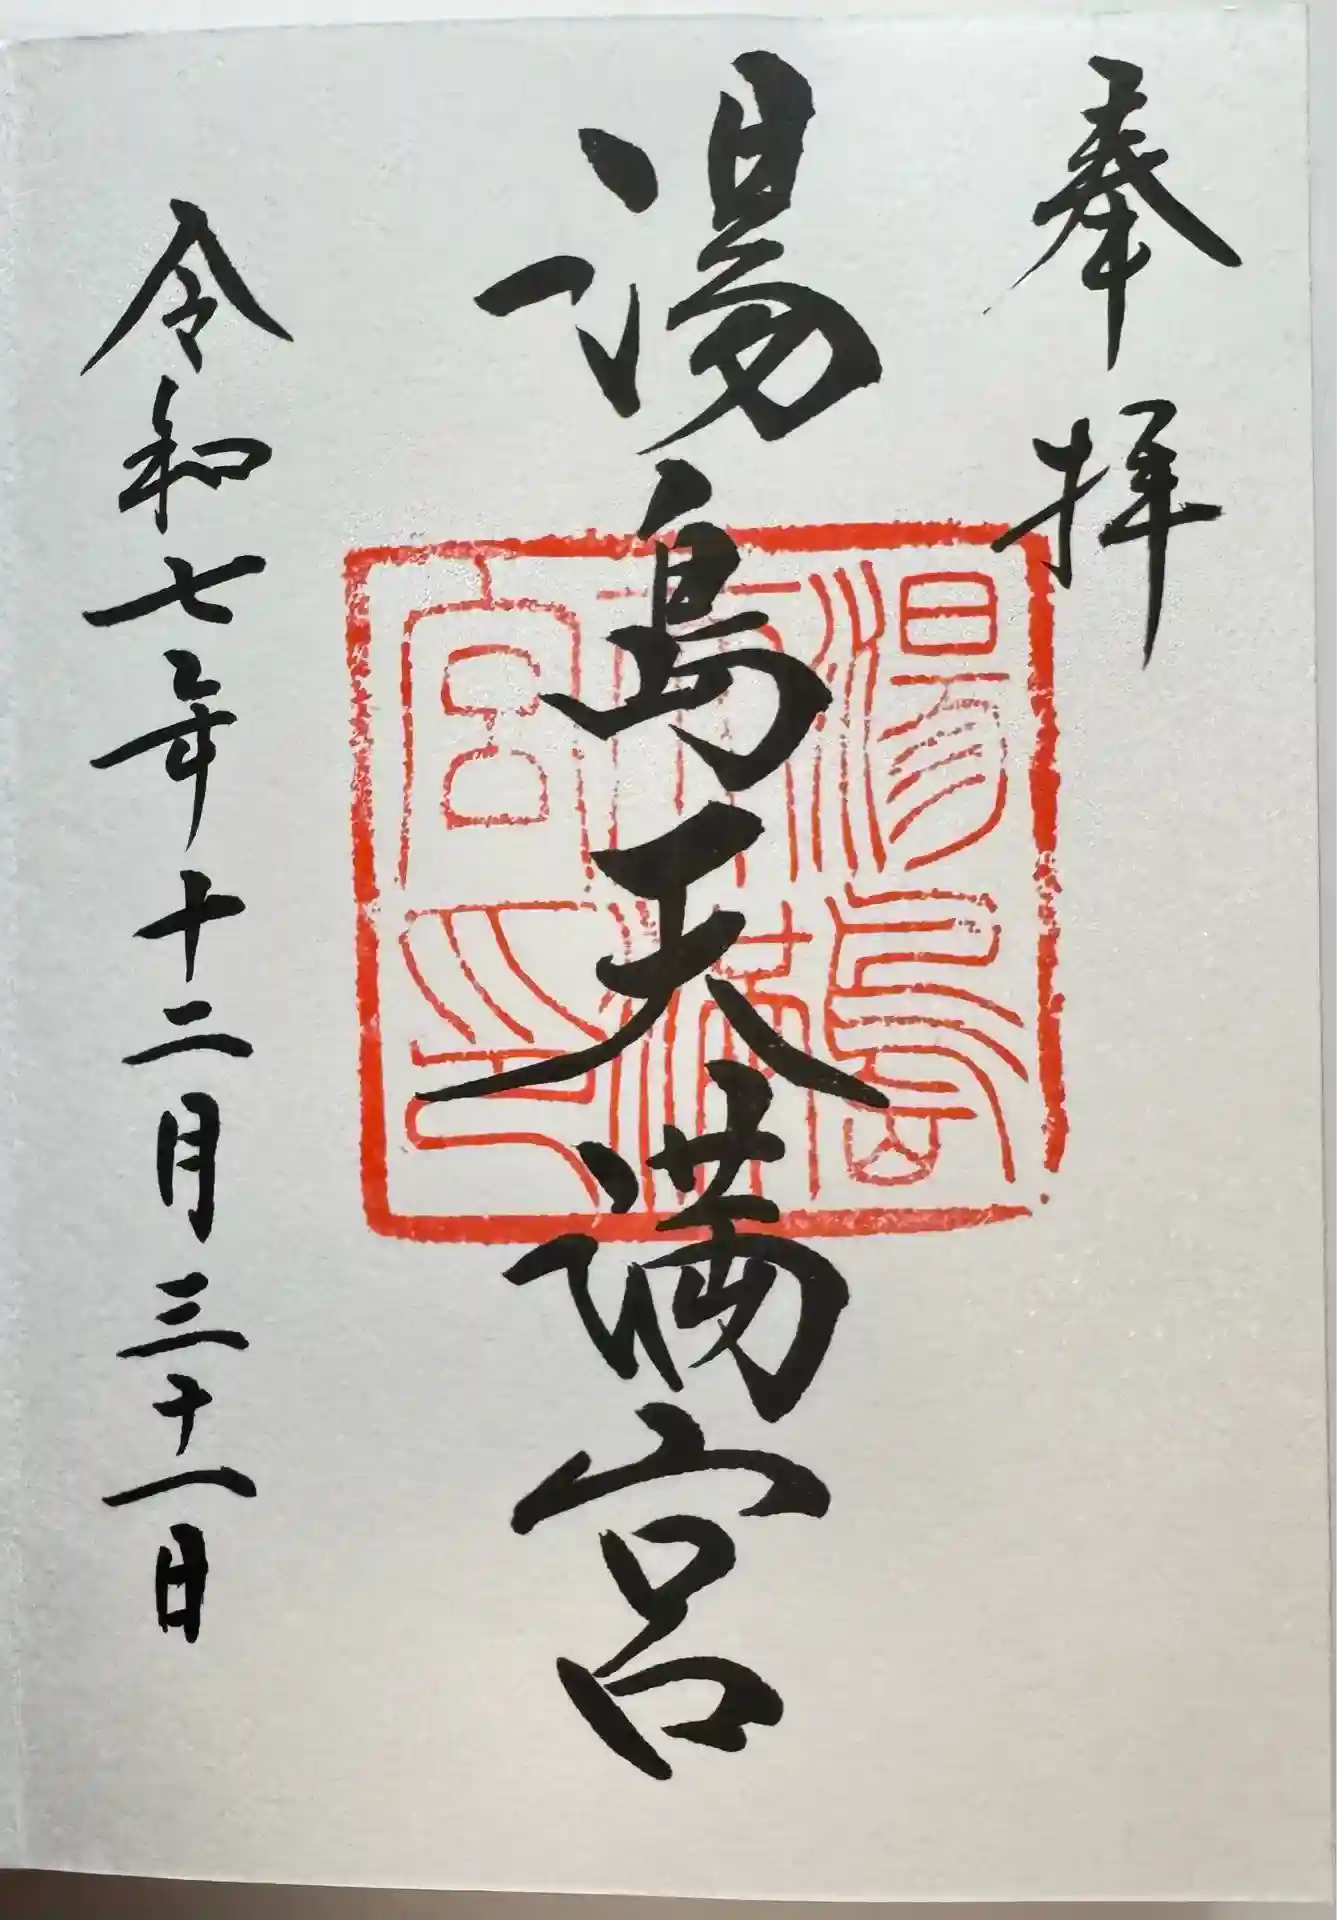 奉拝
湯島天満宮
湯島天満宮印
令和七年十二月三十一日